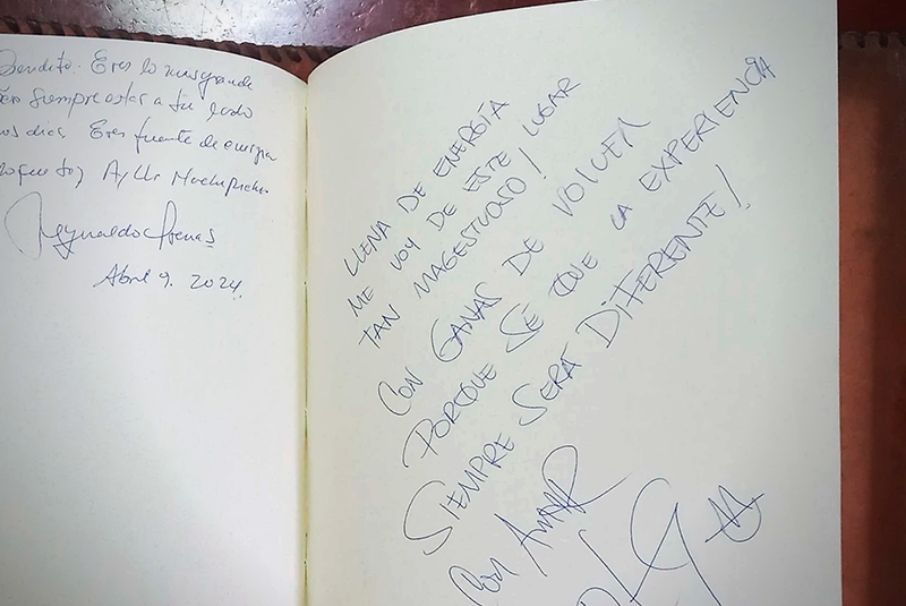 Bendito. Eres lo mas grande
siempre estar a tu lado
dias Eres fuente de energia
Ayllu Machupicchu
Reynaldo Arenas
Abril 9. 2024
LLENA DE ENERGÍA
ME VOY DE ESTE LUGAR
TAN MAGESTUOSO!
CON GANAS DE VOLVER
PORQUE SÉ QUE LA EXPERIENCIA
SIEMPRE SERÁ DIFERENTE!
CON AMOR